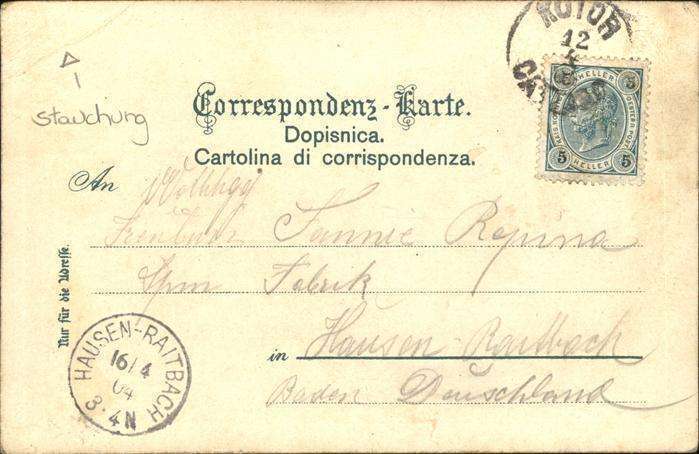 KOTOR
12
4
CATTARO
5 HELLER 5
5 HELLER 5
Stauchung
Correspondenz-Karte.
Dopisnica.
Cartolina di corrispondenza.
An
Fannie Repina
Fabrik
in Hausen Raitbach
Baden Deutschland
Nur für die Adresse.
HAUSEN-RAITBACH
16/4
04
3·4N